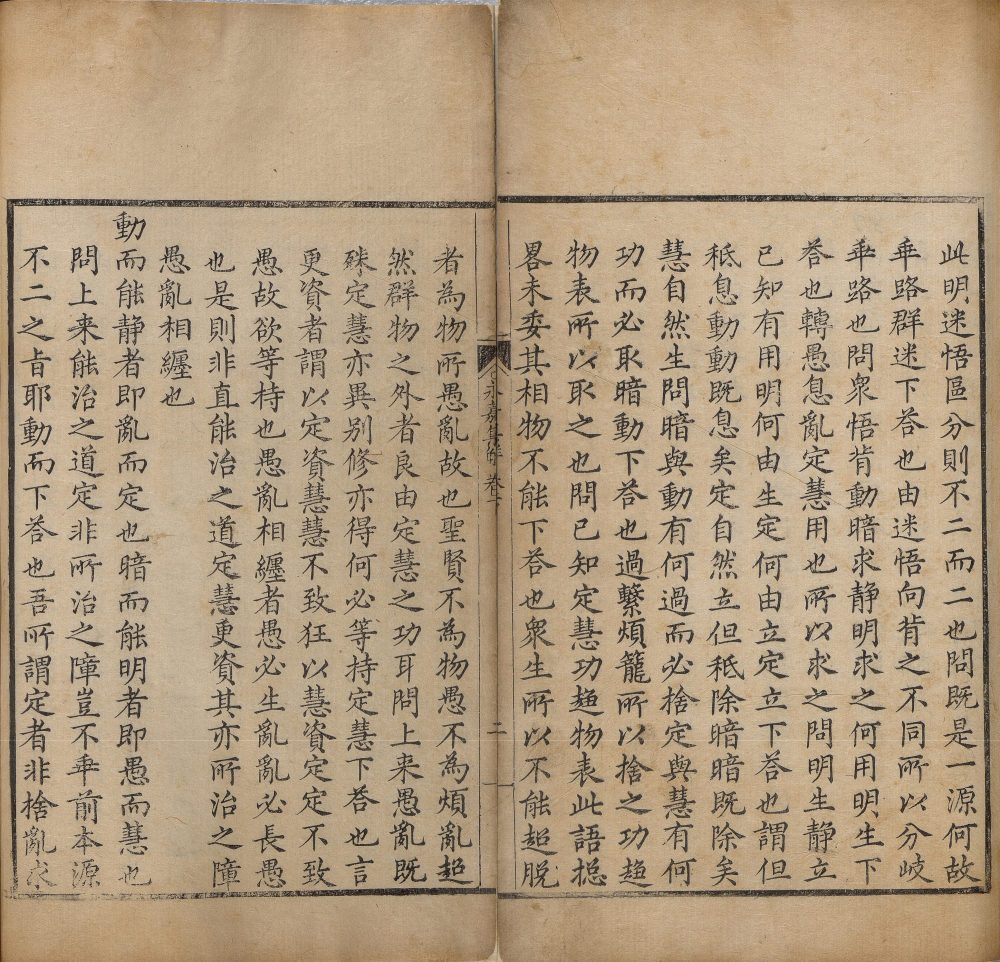 此明迷悟區分則不二而二也問既是一源何故
乖路群迷下荅也由迷悟向背之不同所以分岐
乖路也問衆悟背動暗求静明求之何用明生下
荅也轉愚息亂定慧用也所以求之問明生静立
已知有用明何由生定何由立定立下荅也謂但
秪息動動既息矣定自然立但秪除暗暗既除矣
慧自然生問暗與動有何過而必捨定與慧有何
功而必取暗動下荅也過繫煩籠所以捨之功趍
物表所以取之也問已知定慧功趍物表此語揔
畧未委其相物不能下荅也衆生所以不能超脱
永嘉集 卷下
二
者為物所愚亂故也聖賢不為物愚不為煩亂超
然群物之外者良由定慧之功耳問上来愚亂既
殊定慧亦異别修亦得何必等持定慧下荅也言
更資者謂以定資慧慧不致狂以慧資定定不致
愚故欲等持也愚亂相纏者愚必生亂亂必長愚
也是則非直能治之道定慧更資其亦所治之障
愚亂相纏也
動而能静者即亂而定也暗而能明者即愚而慧也
問上来能治之道定非所治之障豈不乖前本源
不二之旨耶動而下荅也吾所謂定者非捨亂求